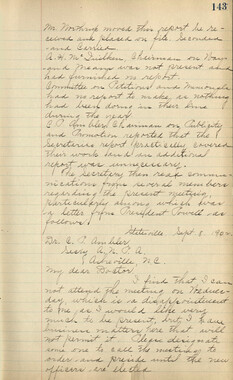 143
Mr. Nothing moved this report be re-
ceived and placed on file. Seconded
and carried.
A. H. McQuilkin, Chairman on Ways
and Means was not present and
had furnished no report.
Committee on Petitions and Municipal
had no report to make, as nothing
had been done in their line
during the year.
C. P. Ambler Chairman on Publicity
and Promotion reported that the
Secretarys report practically covered
their work and an additional
report was unnecessary.
The Secretary then read commu-
nications from several members
regarding the present meeting,
particularly among which was
a letter from President Powell as
follows:
Statesville Sept. 8. 1902.
Dr. C. P. Ambler
Secry A.N.P.A.
Asheville, N.C.
My dear Doctor:
I find that I can
not attend the meeting on Wednes-
day, which is a disappointment
to me, as I would like very
much to be present, but I have
business matters here that will
not permit it. Please designate
some one to call the meeting to
order and preside until the new
officers are elected.